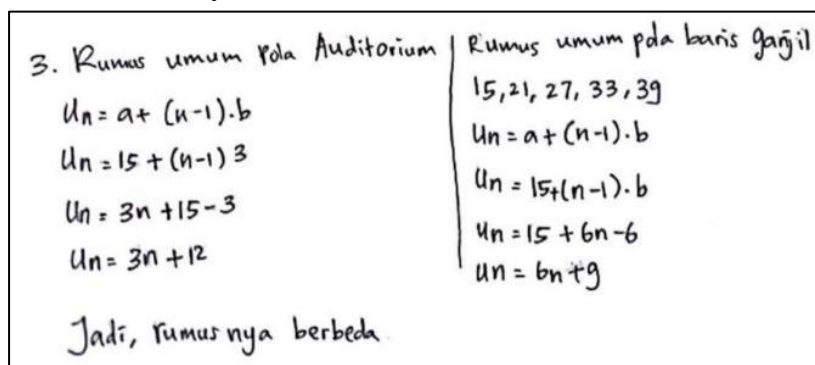 3. Rumus umum Pola Auditorium
Un = a + (n-1).b
Un = 15 + (n-1) 3
Un = 3n + 15 - 3
Un = 3n + 12
Jadi, rumus nya berbeda
Rumus umum pola baris ganjil
15, 21, 27, 33, 39
Un = a + (n-1).b
Un = 15+(n-1).b
Un = 15 + 6n - 6
Un = 6n + 9